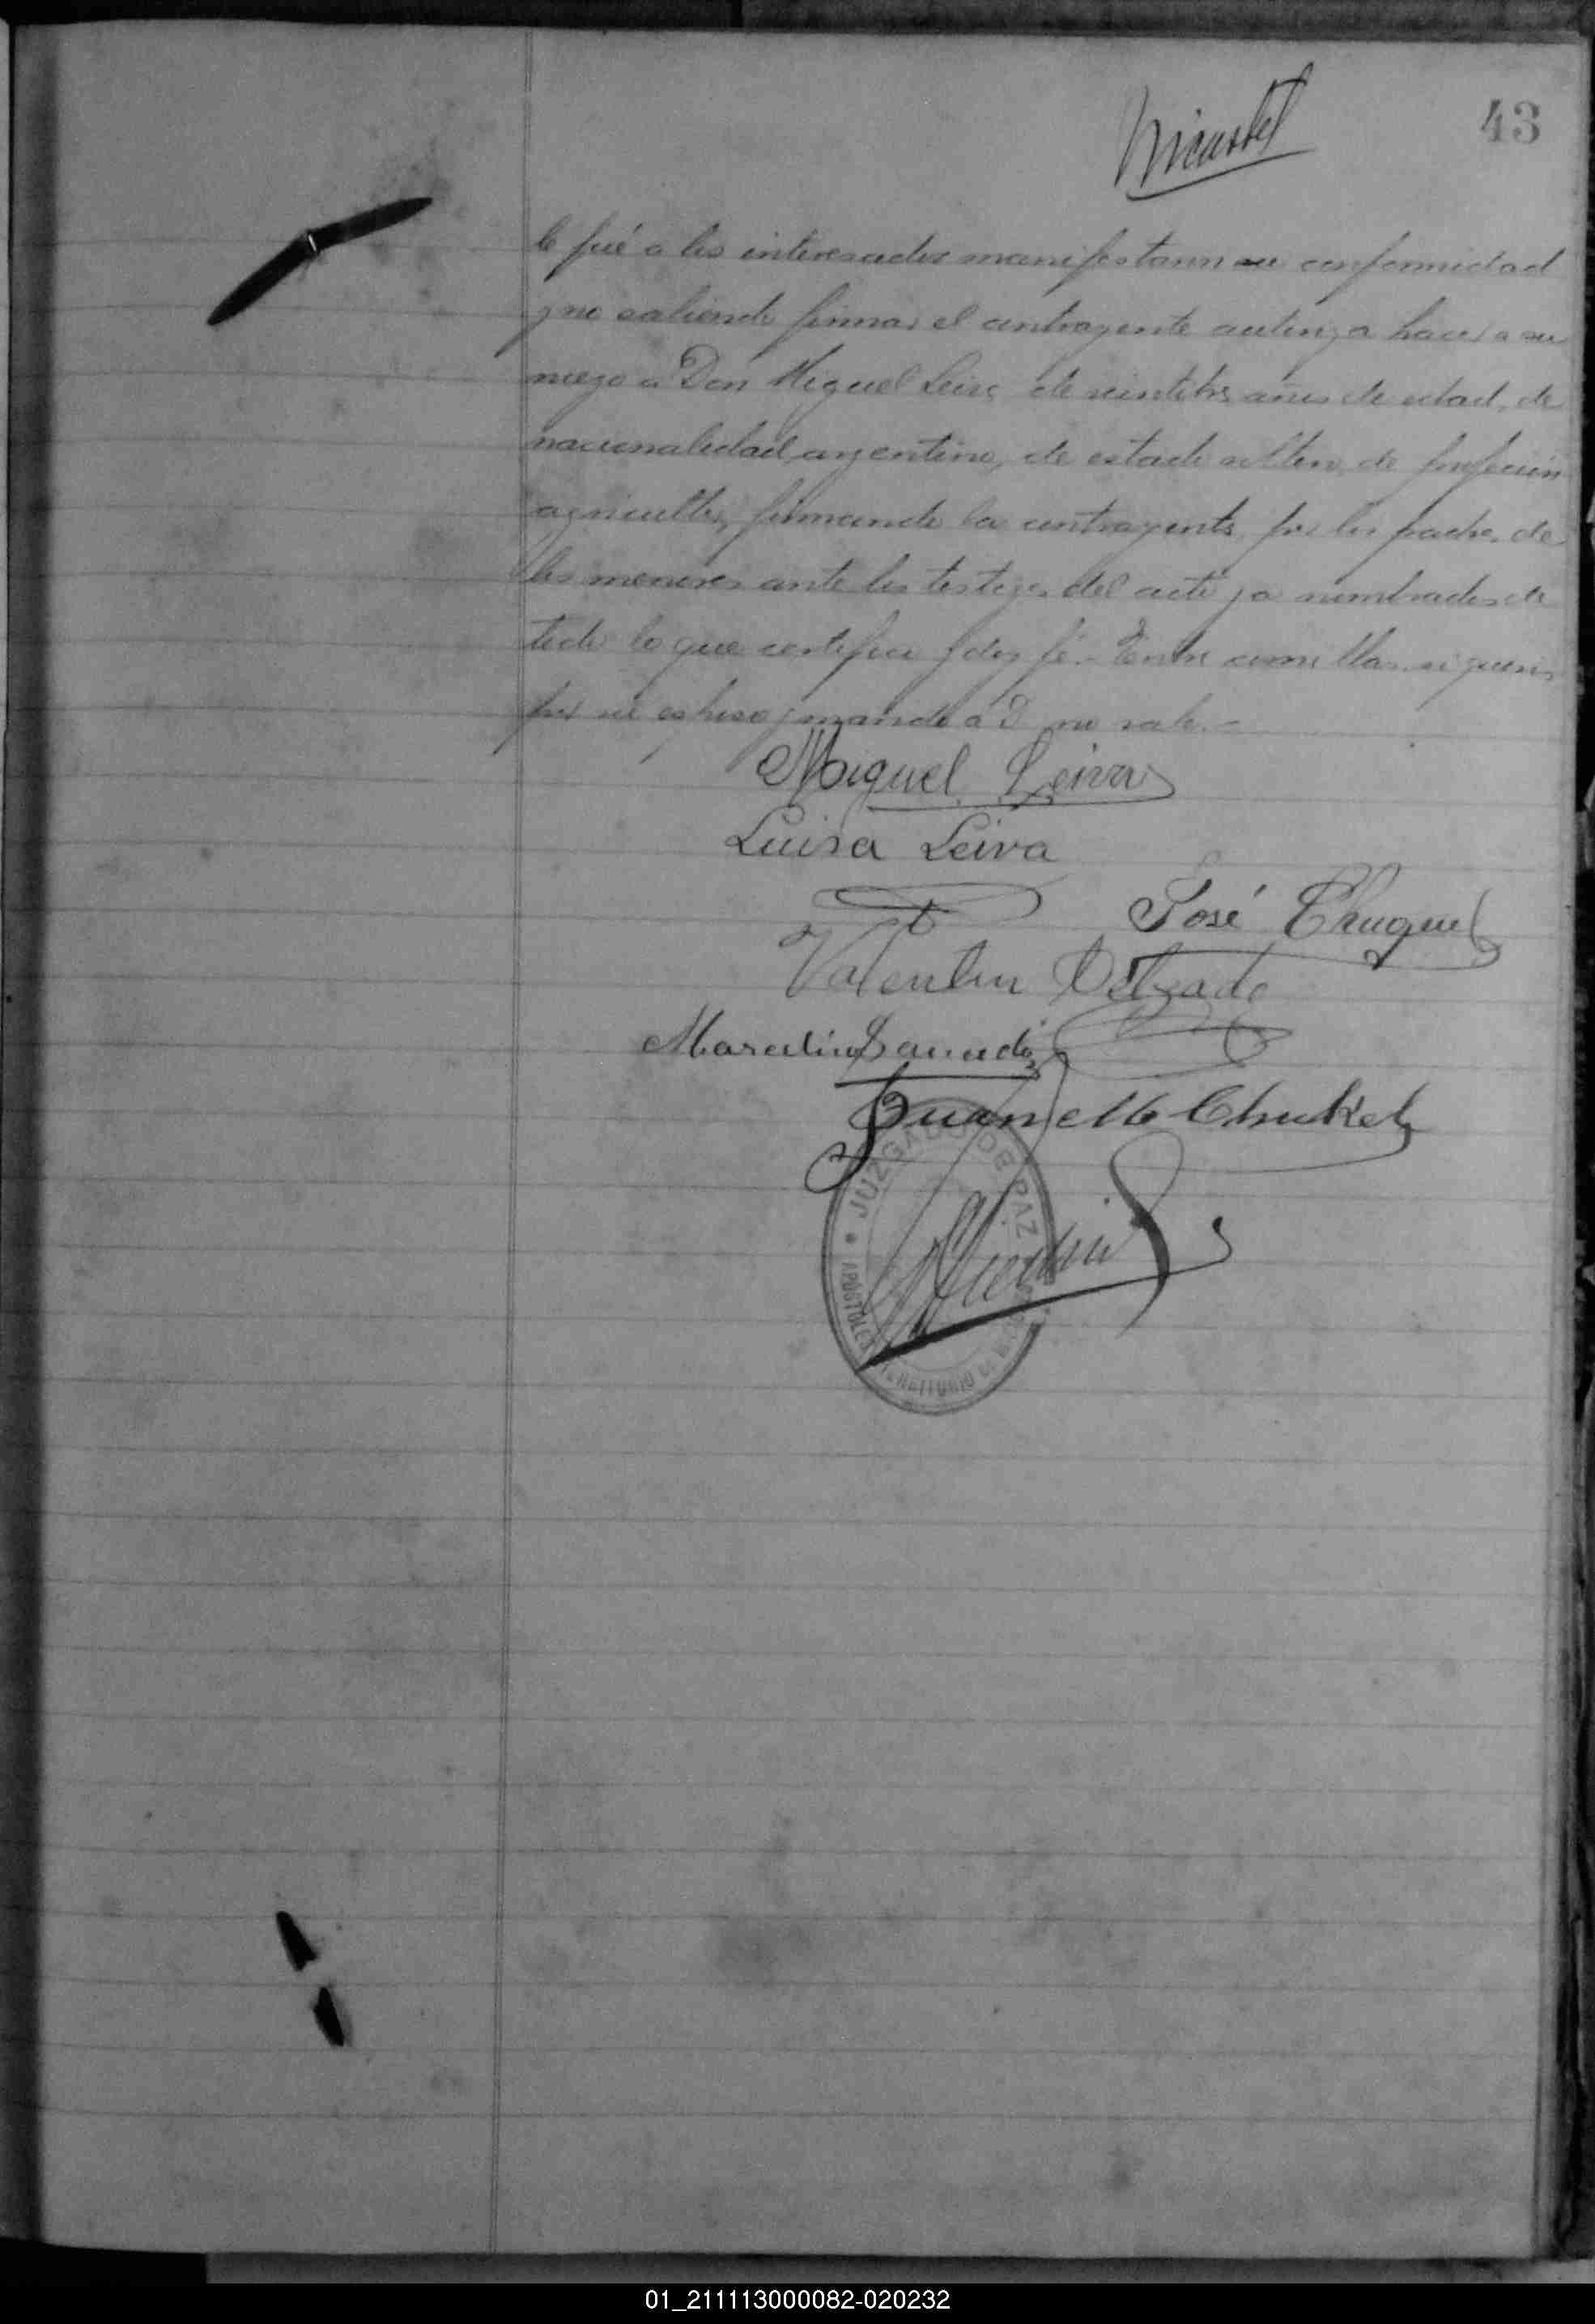 43
le fué a los interesados manifestaron su conformidad
y no sabiendo firmar el contrayente autoriza hacer a su
ruego a Don Miguel Leiva de veintitres años de edad, de
nacionalidad argentino, de estado soltero, de profecion
agricultor, firmando la contrayente, por los padres de
los menores ante los testigos del acto ya nombrados de
todo lo que certifico y doy fé.- Entre comillas
por su esposo y no vale.-
Miguel Leiva
Luisa Leiva
José Chuquel
Valentin Delgado
Juan M Chukel
JUZGADO DE PAZ
APOSTOLES TERRITORIO DE
01_211113000082-020232